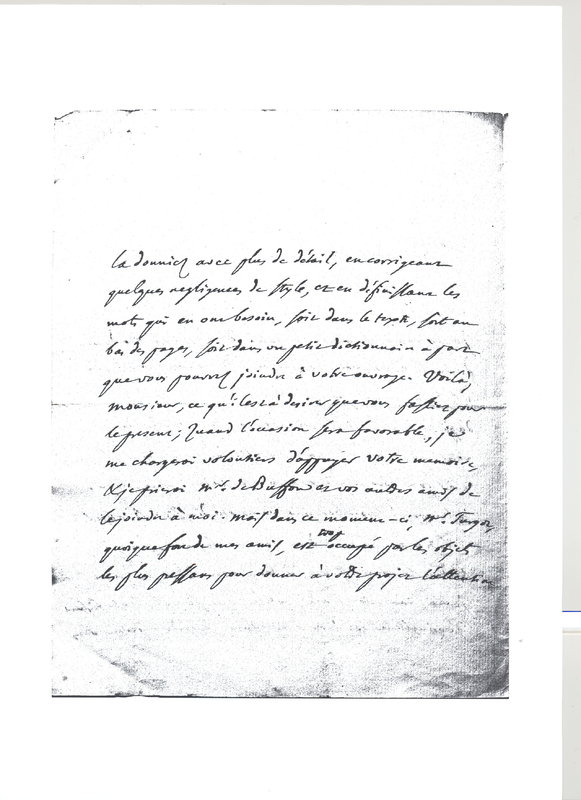 la donniez avec plus de détail, en corrigeant
quelques negligences de style, et en définissant les
mots qui en ont besoin, soit dans le texte, soit au
bas des pages, soit dans un petit dictionnaire à part
que vous pourrez joindre à votre ouvrage. Voilà,
monsieur, ce qu'il est à desirer que vous fassiez pour
le present; Quand l'occasion sera favorable, je
me chargerai volontiers d'appuyer votre memoire,
& je prierai Mr. de Buffon et vos autres amis de
se joindre à moi. mais dans ce moment-ci, Mr. Turgot,
quoique fort de mes amis, est trop occupé par les objets
les plus pressans pour donner à votre projet l'attention